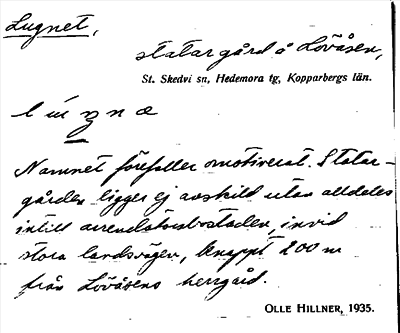 Lugnet,
statargård å Lövåsen,
St. Skedvi sn, Hedemora tg, Kopparbergs län.
Namnet förefaller omotiverat. Statar-
gården ligger ej avskild utan alldeles
intill arrendatorsbostaden, invid
stora landsvägen, knappt 200 m
från Lövåsens herrgård.
OLLE HILLNER, 1935.